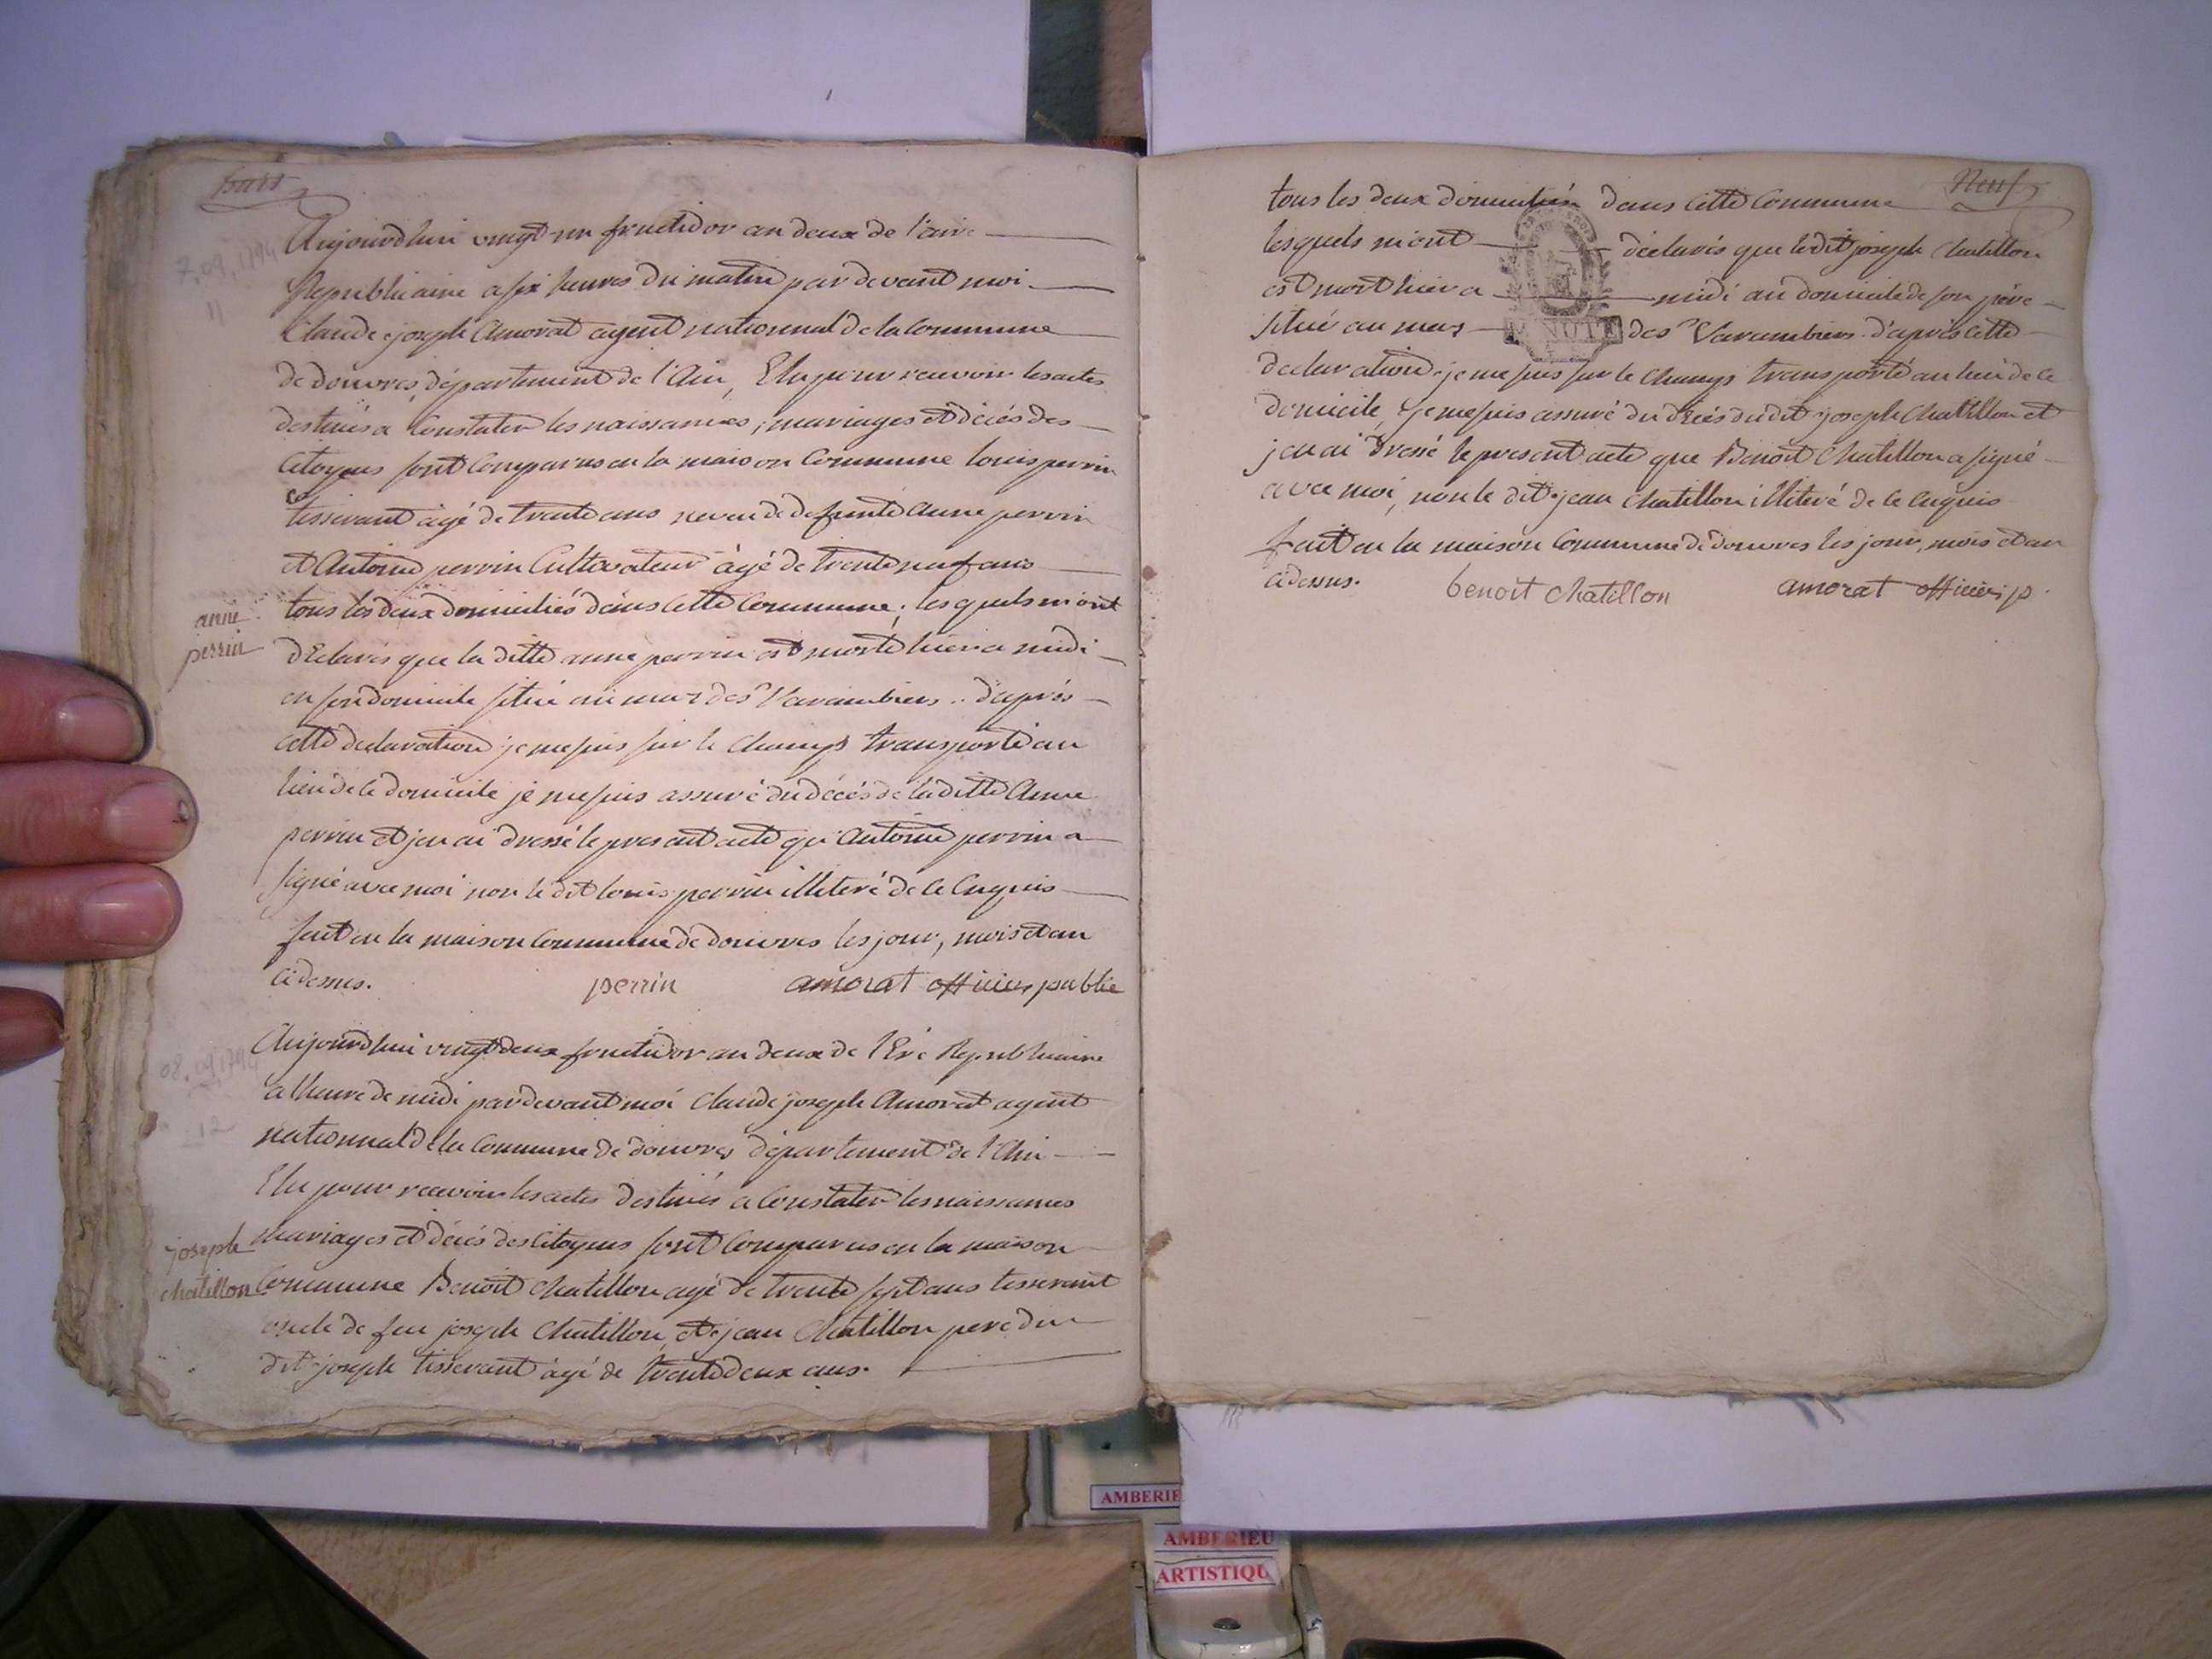 huit
Aujourdhui vingt un fructidor an deux de l'aire
Republicaine a six heures du matin par devant moi
Claude joseph Amorat agent nationnal de la Commune
de douvres, département de l'Ain, Elu pour recevoir les actes
destinés a Constater les naissances, mariages et décés des
Citoyens sont Comparus en la maison Commune louis perrin
tisserant agé de trente ans neveu de defunte anne perrin
et Antoine perrin Cultivateur âgé de trente neuf ans
tous les deux domiciliés dans cette Commune, lesquels m'ont
anne
perrin
déclarés que la ditte anne perrin est morte hier a midi
en son domicile situé au mas des Varambiers. d'après
cette declaration je me suis sur le champs transporté au
lieu de ce domicile je me suis assuré du décés de la ditte Anne
perrin et j'en ai dressé le present acte qu'Antoine perrin a
signé avec moi non le dit louis perrin illiteré de ce Enquis
fait en la maison Commune de douvres les jour, mois et an
cidessus. perrin amorat officier public
7,09,1794
11
Aujourdhui vingt deux fructidor an deux de l'Ere Republicaine
a lheure de midi pardevant moi Claude joseph Amorat agent
nationnal de la Commune de douvres département de l'Ain
Elu pour recevoir les actes destinés a Constater les naissances
mariages et décés des Citoyens sont Comparus en la maison
Commune Benoit Chatillon agé de trente sept ans tisserant
oncle de feu joseph Chatillon, et jean Chatillon pere du
dit joseph tisserant âgé de trente deux ans.
joseph
chatillon
08,09,1794
12
Neuf
tous les deux domiciliés dans cette Commune
lesquels m'ont déclarés que le dit joseph Chatillon
est mort hier a midi au domicile de son père
situé au mas des Varambiers. d'après cette
declaration je me suis sur le champs transporté au lieu de ce
domicile, je me suis assuré du décés du dit joseph Chatillon et
j'en ai dressé le present acte que Benoit Chatillon a signé
avec moi, non le dit jean Chatillon illiteré de ce Enquis
fait en la maison Commune de douvres les jour, mois et an
cidessus. benoit chatillon amorat officier p.
AMBERIE
AMBERIEU
ARTISTIQU